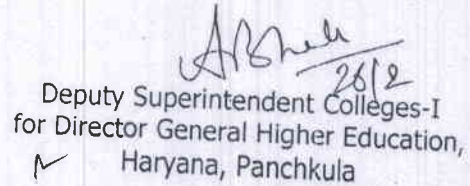 26/2
Deputy Superintendent Colleges-I
for Director General Higher Education,
Haryana, Panchkula